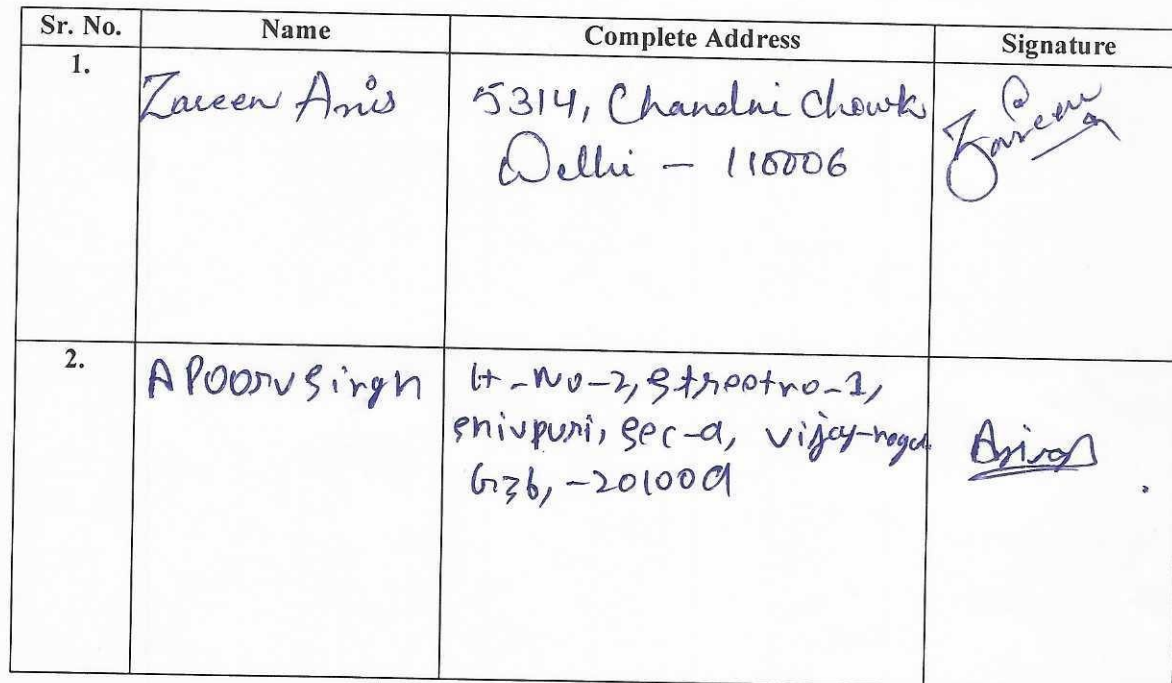 Sr. No. Name Complete Address Signature
1. Zareen Anis 5314, Chandni Chowk Zareen
Delhi - 110006
2. APoorv Singh H-No-2, Street no-1,
shivpuri, sec-9, vijay-nagar
Gzb, -201009